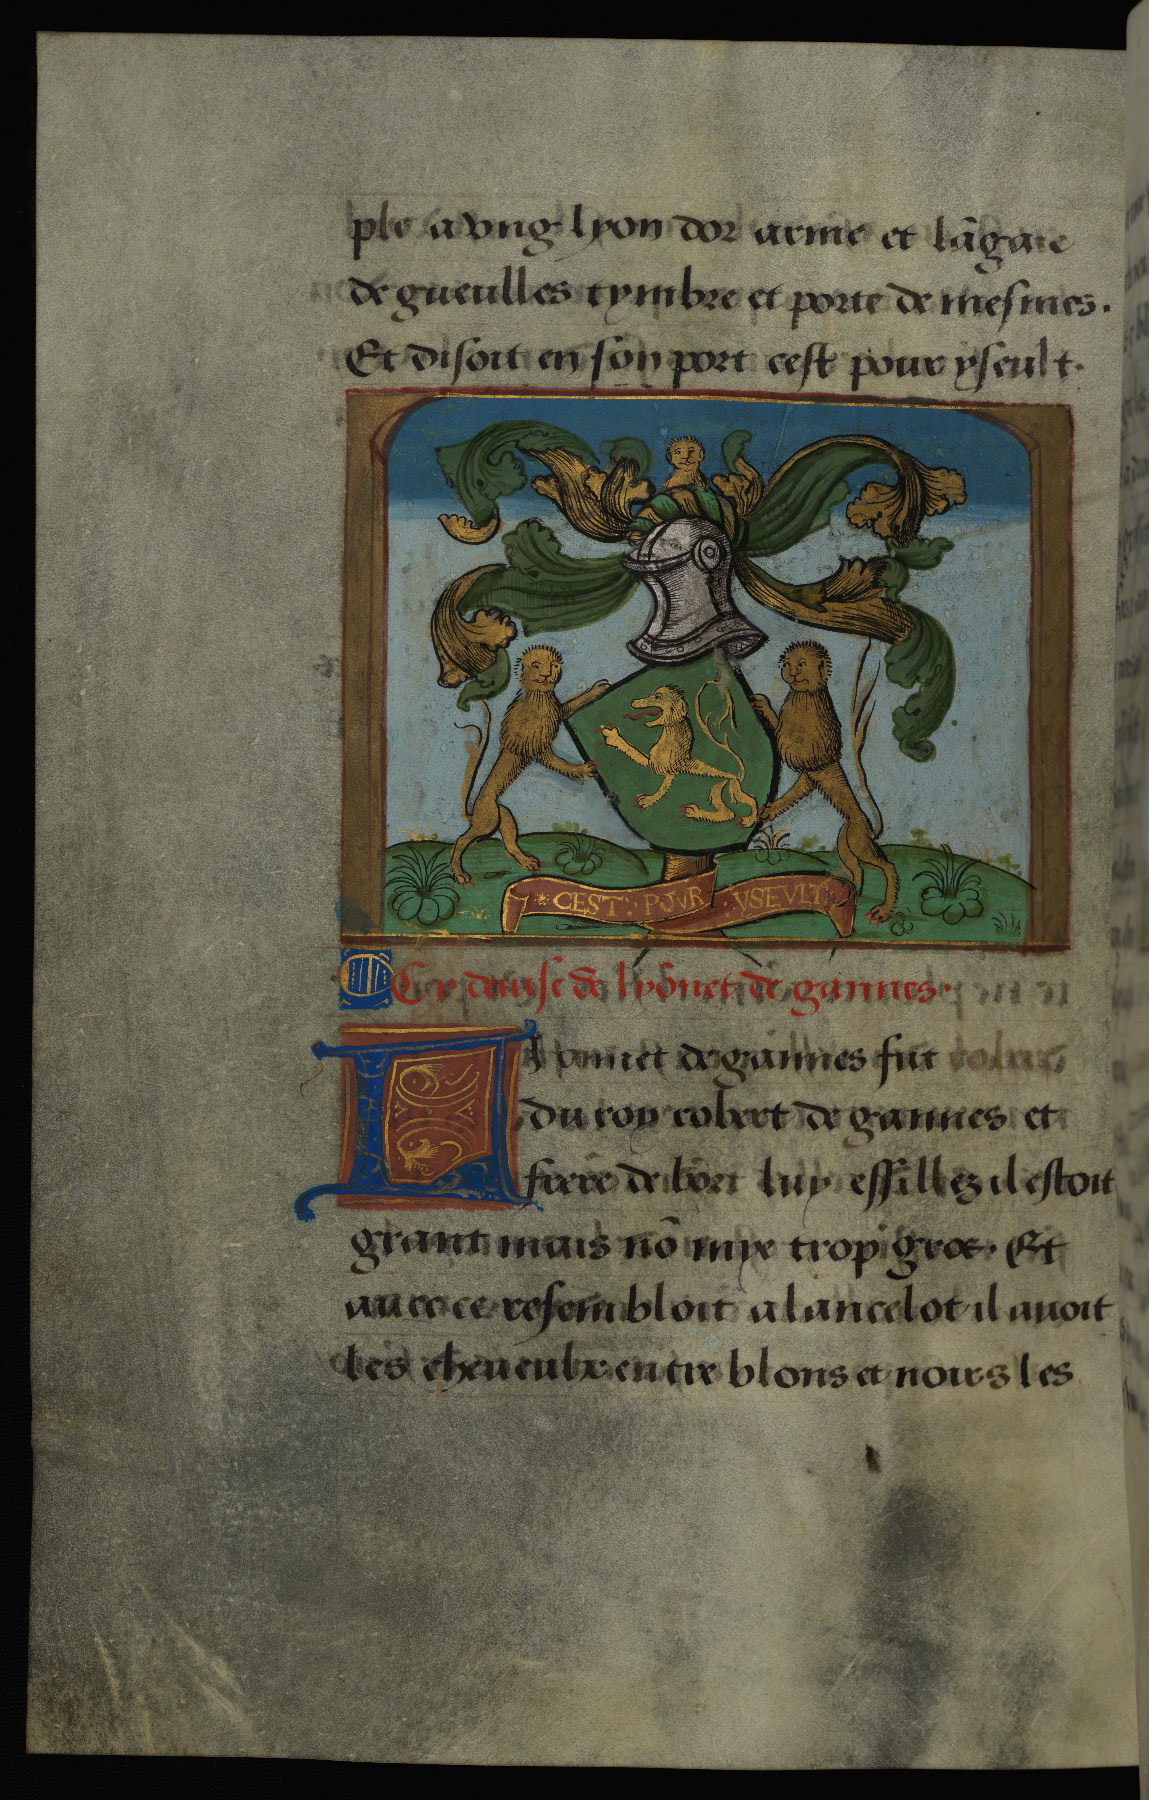 ple a vng lyon dor arme et lãgaie
de gueulles tymbre et porte de mesmes.
Et disoit en son port cest pour yseult.
CEST : POVR : YSEVLT :
Cy deuise de lyonnet de gannes.
Lyonnet de gannes fut
du roy robert de gannes et
frere de bort luy essillez il estoit
grant mais nõ mye trop gros. Et
auec ce resembloit a lancelot il auoit
les cheueulx entre blons et noirs les